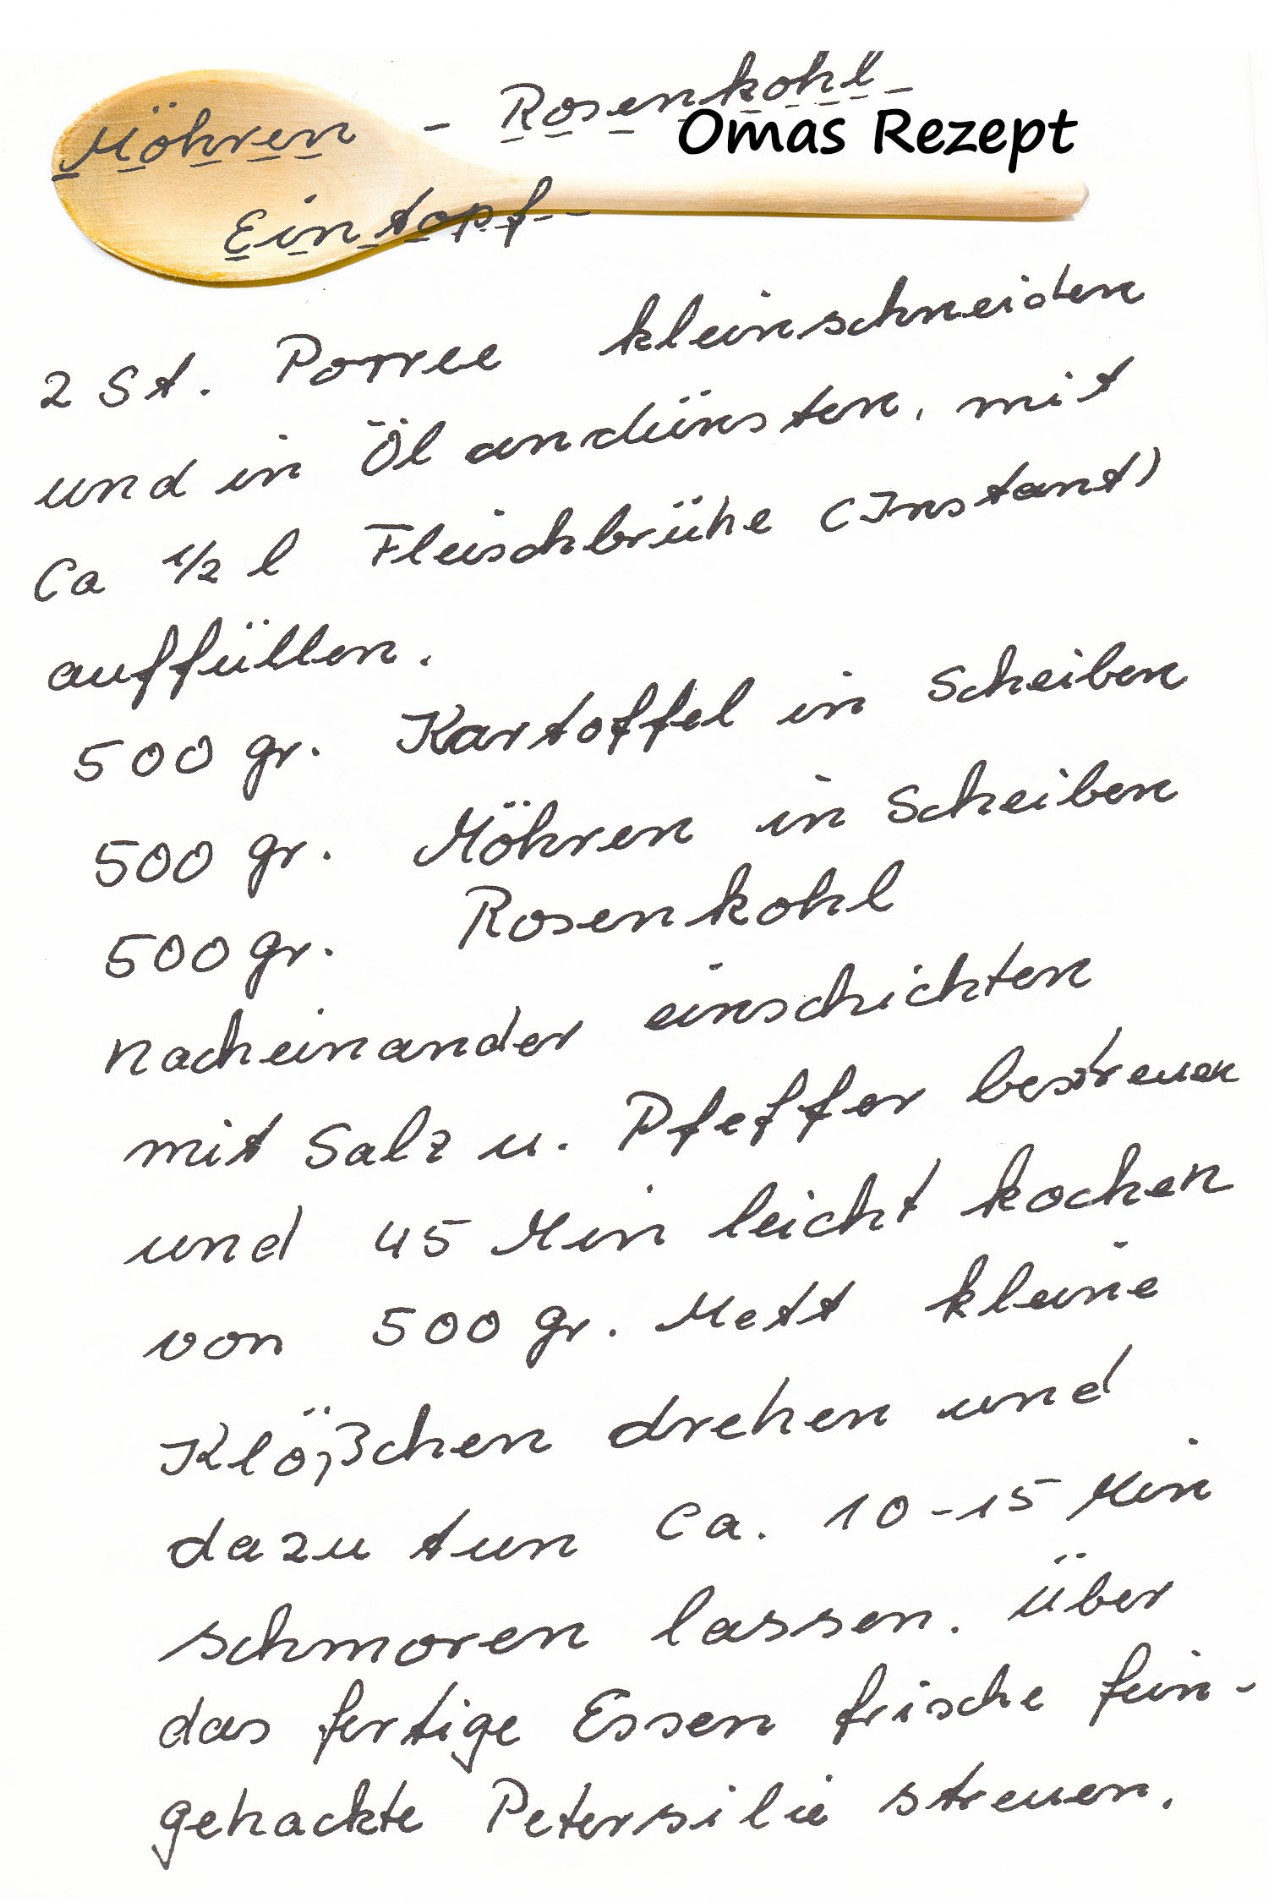 Möhren - Rosenkohl
Omas Rezept
Eintopf
2 St. Porree kleinschneiden
und in Öl andünsten, mit
Ca 1/2 l Fleischbrühe (Instant)
auffüllen.
500 gr. Kartoffel in Scheiben
500 gr. Möhren in Scheiben
500 gr. Rosenkohl
nacheinander einschichten
mit Salz u. Pfeffer bestreuen
und 45 Min leicht kochen
von 500 gr. Mett kleine
Klößchen drehen und
dazu tun Ca. 10-15 Min
schmoren lassen. über
das fertige Essen frische fein-
gehackte Petersilie streuen.